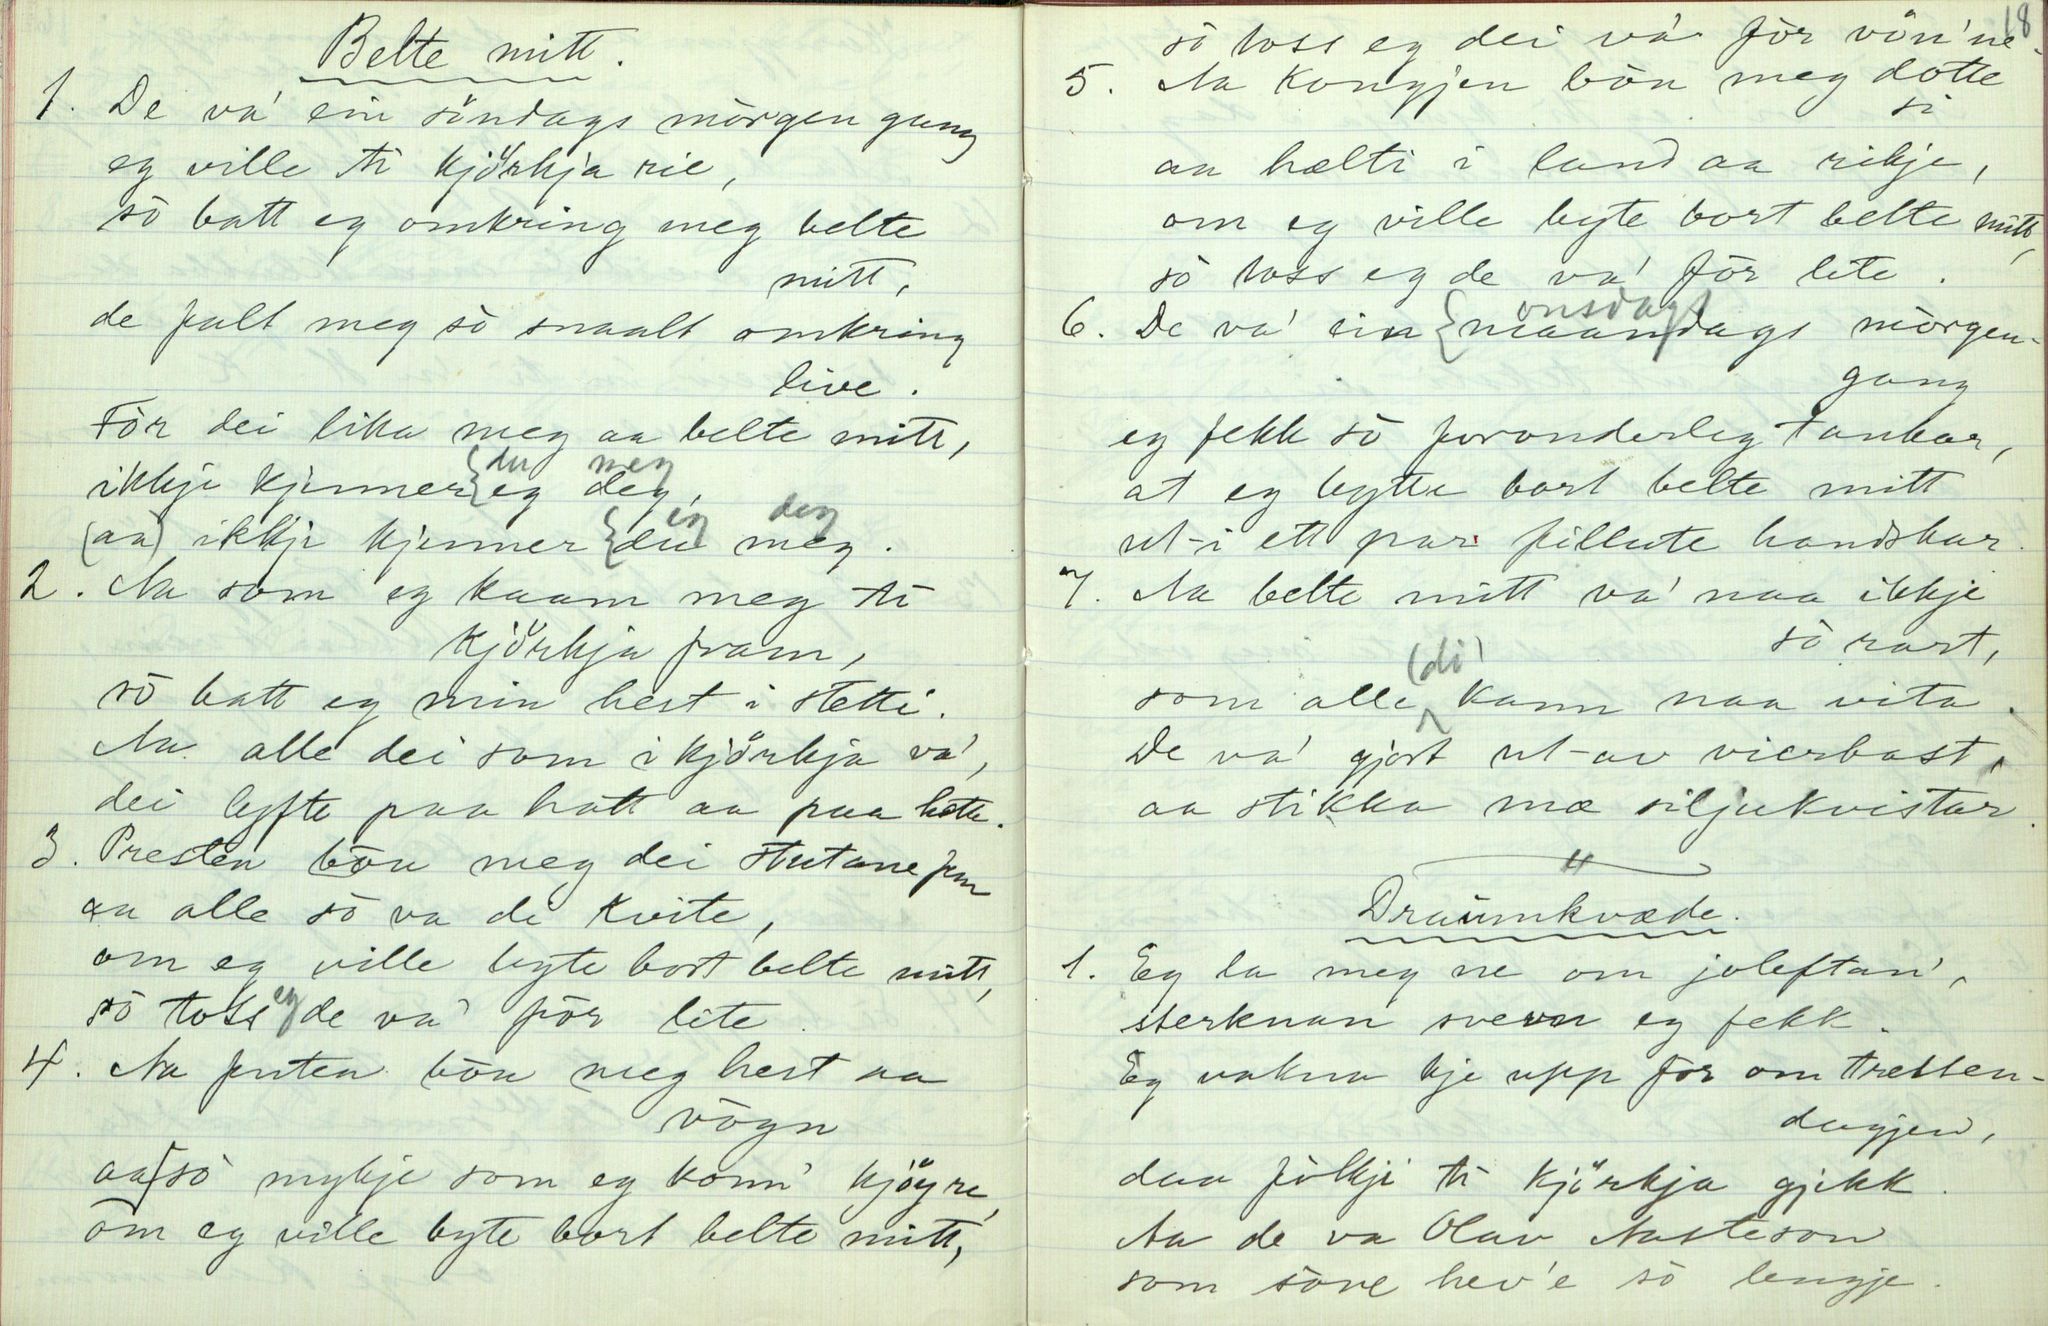 Belte mitt.
1. De va' ein söndags mòrgen gang
eg ville ti kjörkja rie,
sò batt eg omkring meg belte
mitt,
de falt meg sò snaalt omkring
live.
Fòr dei lika meg aa belte mitt,
du meg
ikkje kjenner { eg deg,
eg deg
(aa) ikkje kjenner { du meg.
2. Aa som eg kaam meg ti
kjörkja fram,
sò batt eg min hest i stetti.
Aa alle dei som i kjörkja va',
dei lyfte paa hatt aa paa hette.
3. Presten bòu meg dei stutane
aa alle sò va de kvite,
om eg ville byte bort belte mitt,
sò toss eg de va' fòr lite.
4. Aa futen bòu meg hest aa
vògn
aa sò mykje som eg konn' kjöyre,
om eg ville byte bort belte mitt,
18
sò toss eg dei va' fòr vòn'ne.
5. Aa kongjen bòu meg dotte
si
aa hælti i land aa rikje,
om eg ville byte bort belte mitt,
sò toss eg de va' fòr lite.
onsdags
6. De va' ein { maandags mòrgen-
gang
eg fekk sò foronderleg tankar,
at eg bytte bort belte mitt
ut-i ett par fillute handskar.
7. Aa belte mitt va' naa ikkje
sò rart,
(di)
som alle kann naa vita.
De va' gjort ut-av vierbast,
aa stikka mæ siljukvistar.
"
Draumkvæde.
1. Eg la meg ne om joleftan',
sterknan svevn eg fekk.
Eg vakna kje upp fòr om trettan-
dagjen,
daa fòlkji ti kjörkja gjekk.
Aa de va Olav Aasteson
som sòve hev'e sò lengje.